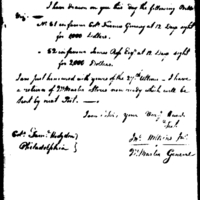 I have drawn on you this day the following Bills
Viz:
No. 81 in favour Colo. Francis Gurney at 12 days sight
for 1000 Dollars.
82 in favour James Ross Esqr. at 12 days sight
for 2,000 Dollars.
I am just honored with yours of the 27th Ultimo - I have
a return of Qr. Master Stores now ready which will be
sent by next Post. -
I am, Sir, your
Jno. Wilkins Jr.
Qr. Master General
Colo. Saml. Hodgdon
Philadelphia